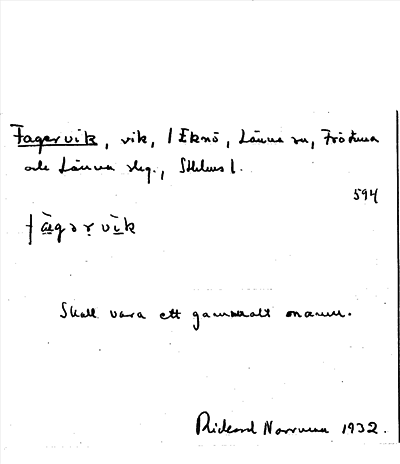 Fagervik, vik, / Eknö, Länna sn, Frötuna
och Länna slg., Sthlms l.
594
fà̱gər̥vi̱k
Skall vara ett gammalt namn.
Rickard Norrman 1932.